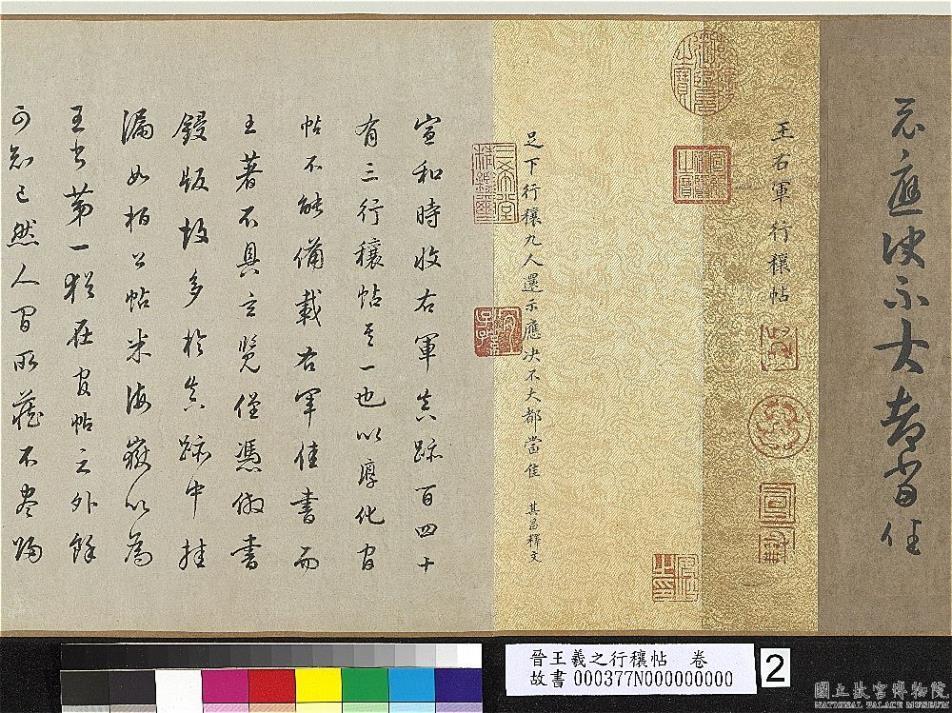 示應決不大都當佳
王右軍行穰帖
足下行穰九人還示應決不大都當佳 其昌釋文
宣和時收右軍真跡百四十
有三行穰帖其一也以淳化官
帖不能備載右軍佳書而
王著不具玄覽僅憑倣書
鋟版故多於真跡中挂
漏如桓公帖米海嶽以為
王書第一猶在官帖之外餘
可知已然人間所藏不盡歸
晉王羲之行穰帖 卷
故書 000377N000000000
2
國立故宮博物院
NATIONAL PALACE MUSEUM